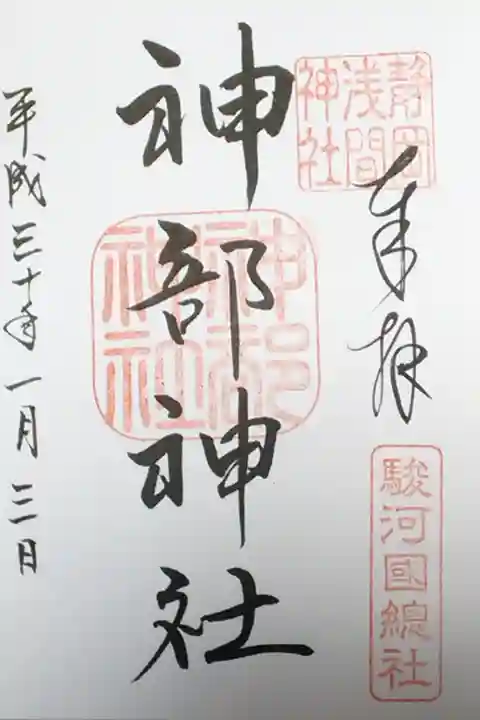 静岡
浅間
神社
奉拝
駿河国總社
神部神社
神部
神社
平成三十年一月三日